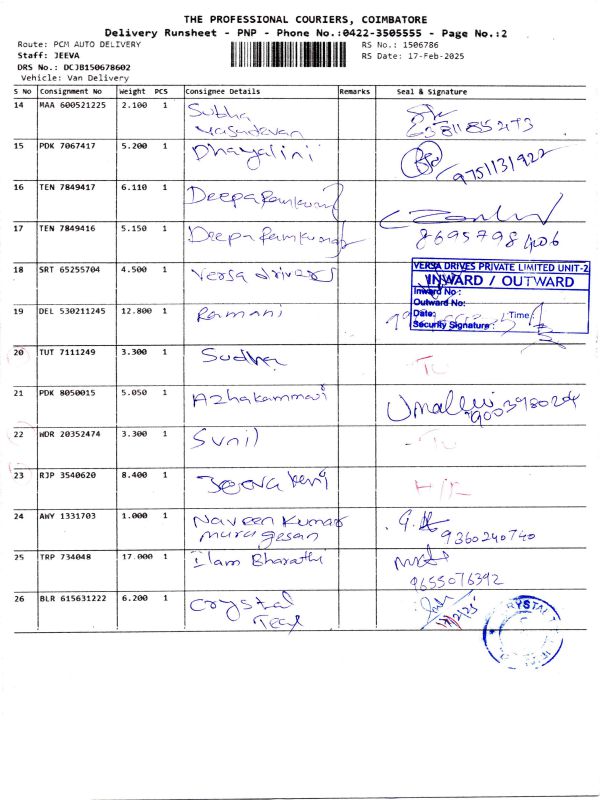 THE PROFESSIONAL COURIERS, COIMBATORE
Delivery Runsheet - PNP - Phone No.:0422-3505555 - Page No.:2
Route: PCM AUTO DELIVERY
RS No.: 1506786
Staff: JEEVA
RS Date: 17-Feb-2025
DRS No.: DCJB150678602
Vehicle: Van Delivery
S No Consignment No Weight PCS Consignee Details Remarks Seal & Signature
14 MAA 600521225 2.100 1 Subha
Vasudevan
15 PDK 7067417 5.200 1 Dhayalini 9751131922
16 TEN 7849417 6.110 1 Deepa Ramkumar
17 TEN 7849416 5.150 1 Deepa Ramkumar 8695798406
18 SRT 65255704 4.500 1 Versa drivers
VERSA DRIVES PRIVATE LIMITED UNIT-2
INWARD / OUTWARD
Inward No :
Outward No:
Date: Time :
Security Signature :
19 DEL 530211245 12.800 1 Ramani
20 TUT 7111249 3.300 1 Sudha
21 PDK 8050015 5.050 1 Azhakammai
22 WDR 20352474 3.300 1 Sunil
23 RJP 3540620 8.400 1 H/L
24 AWY 1331703 1.000 1 Naveen Kumar
murugesan 9360240740
25 TRP 734048 17.000 1 Ilam Bharathi
9655076392
26 BLR 615631222 6.200 1 Crystal
Tex
CRYSTAL